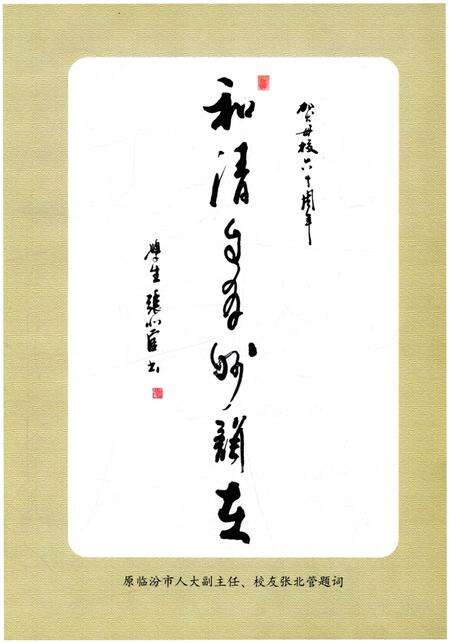 贺母校六十周年
和清自有妙韻在
學生張北管书
原临汾市人大副主任、校友张北管题词